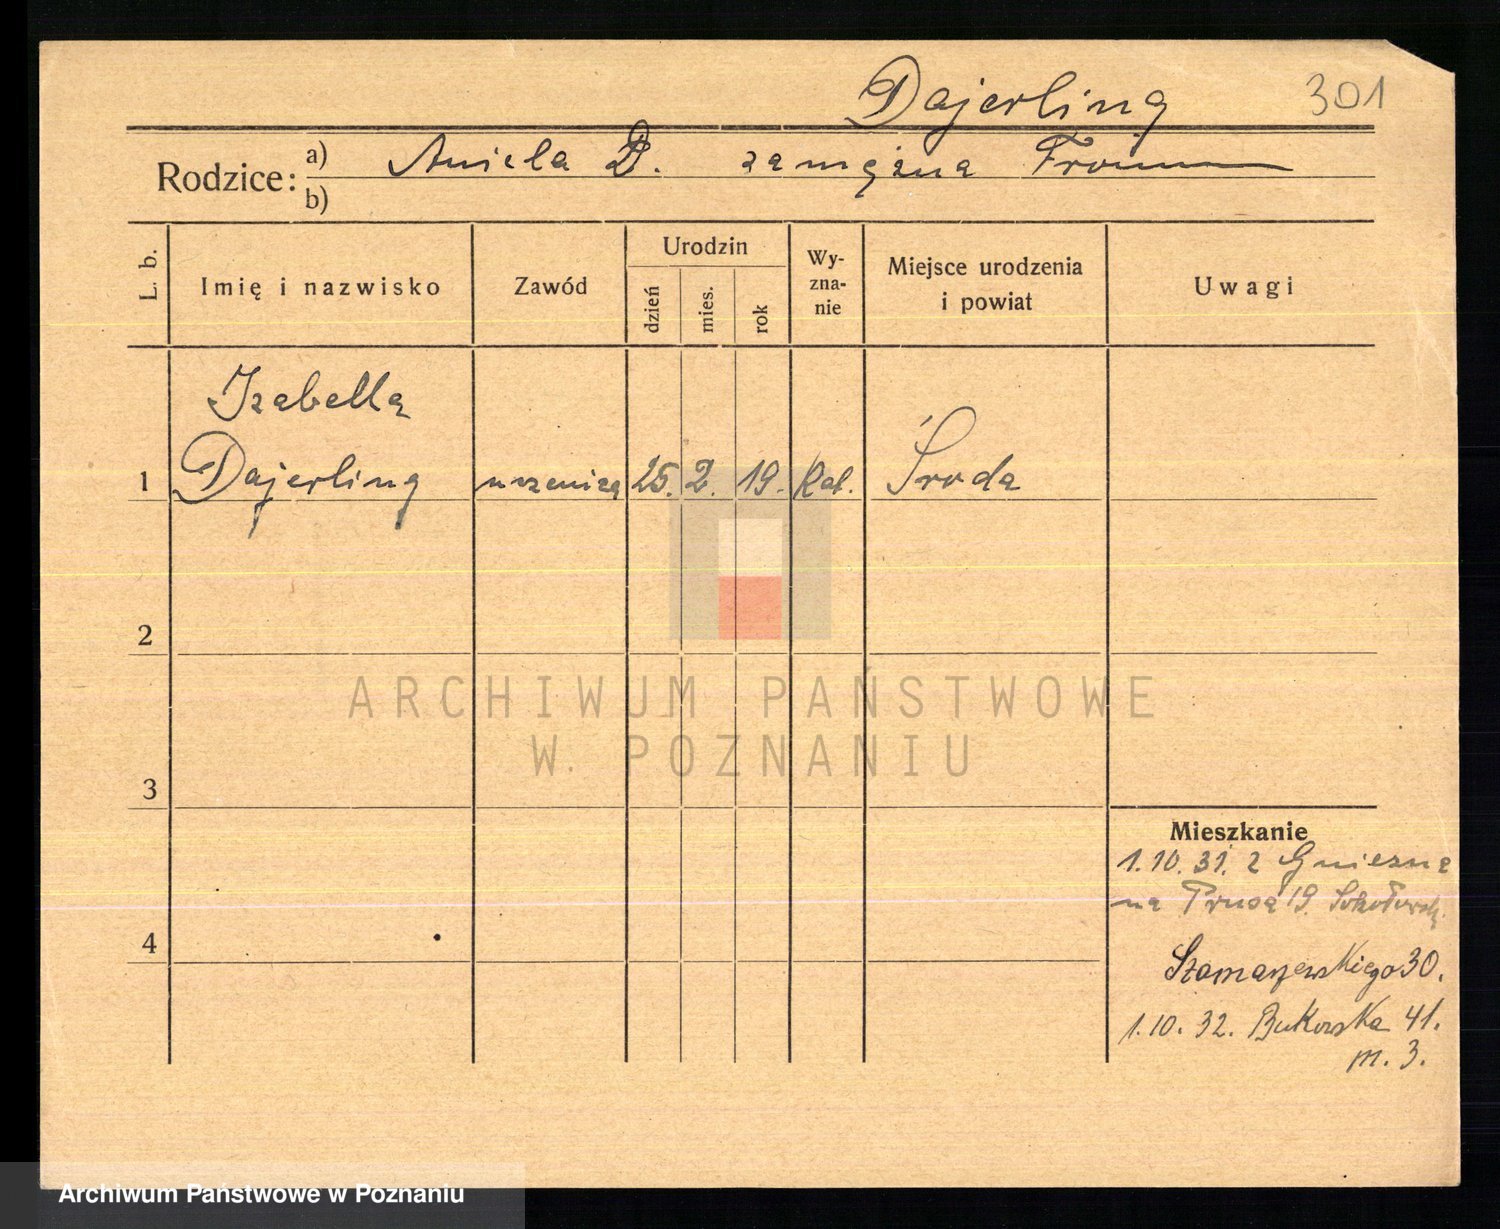 Dajerling 301
Rodzice: a) Aniela D. zamężna
b)
L. b.
Imię i nazwisko
Zawód
Urodzin
dzień
mies.
rok
Wy-
zna-
nie
Miejsce urodzenia
i powiat
Uwagi
Izabella
1 Dajerling uczenica 25. 2. 19. Kat. Środa
2
ARCHIWUM PAŃSTWOWE
W POZNANIU
3
Mieszkanie
1.10.31. z Gniezna
na Prusa 19.
4
Szamarzewskiego 30.
1.10.32. Bukowska 41.
m. 3.
Archiwum Państwowe w Poznaniu